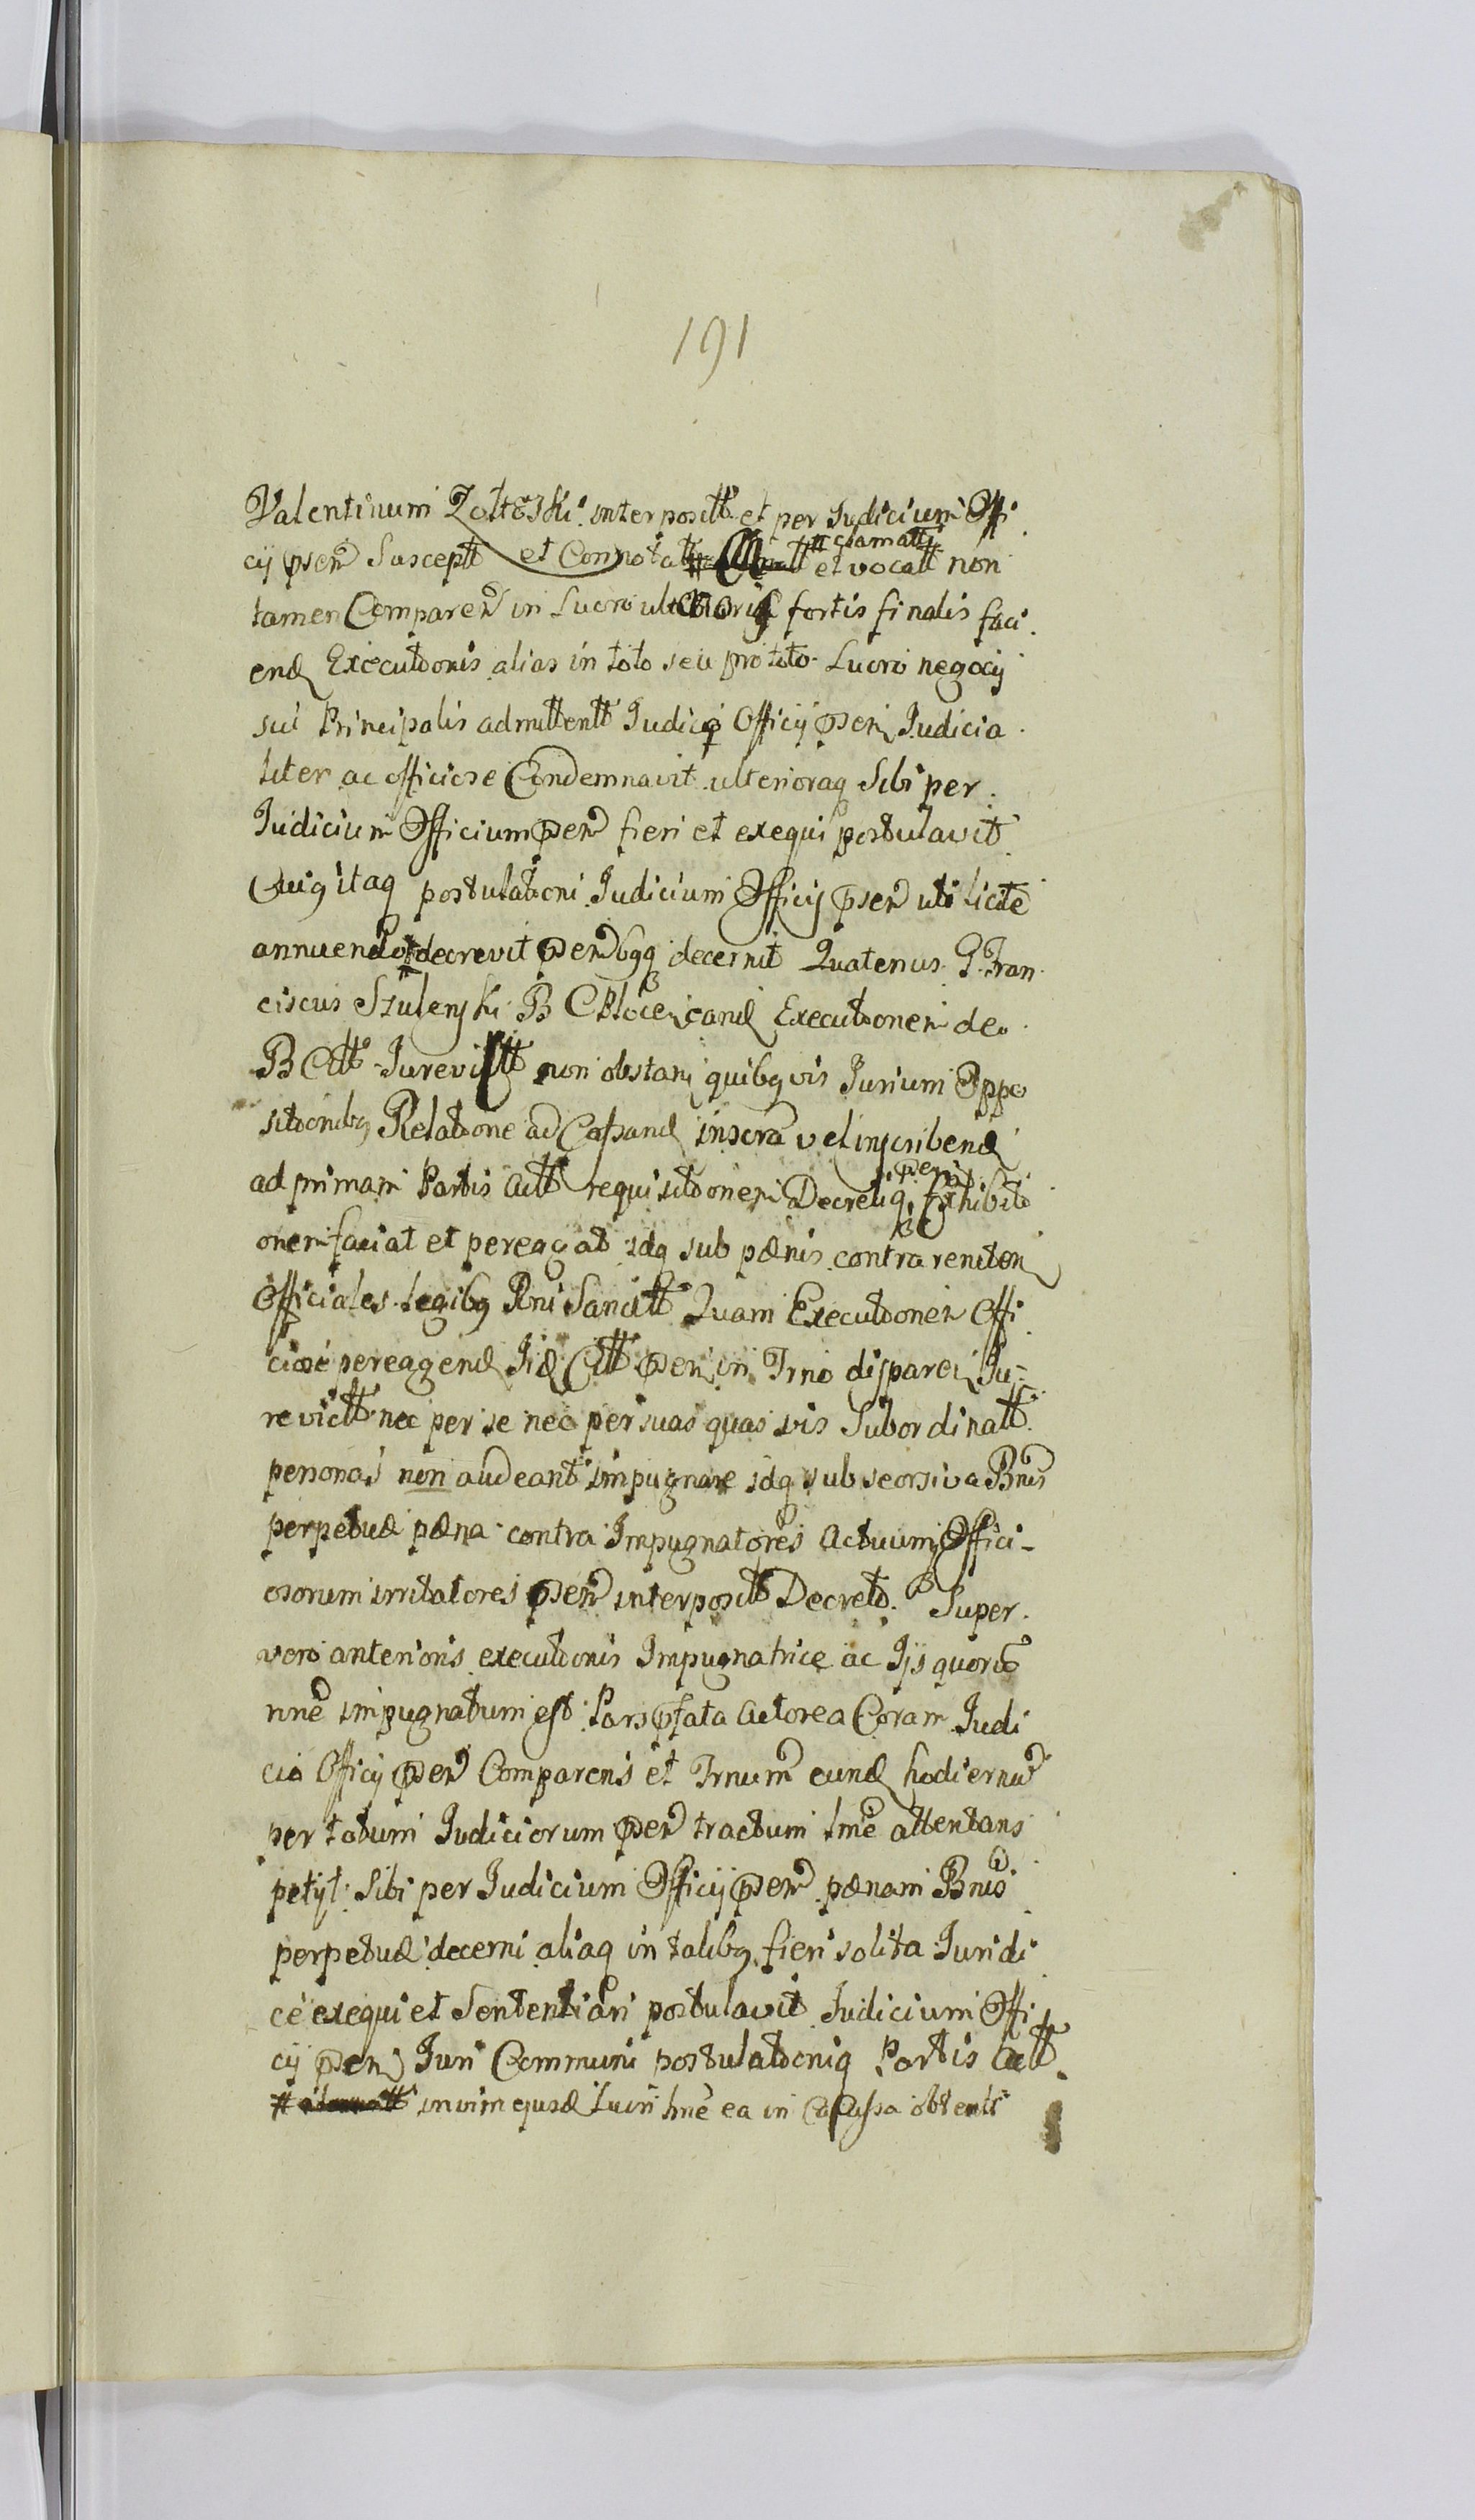 191
Valentinum Zołtoski interposit et per Judicium Offi
cij psen Suscept et Connotat # clamatt et vocatt non
tamen Comparen in Lucro ulterioris fortis finalis faci
end Executionis alias in toto seu pro toto Lucro negocij
sui Principalis admittent Judicii Officij psen Judicia
liter ac officiose Condemnavit ulterioraq Sibi per
Judicium Officium psen fieri et exequi postulavit
Cuiq itaq postulationi Judicium Officij psen uti licite
annuendo decrevit psenbqq decernit Quatenus G Fran
ciscus Szulenski B C Ploceń cand Executionem de
B Citt Jurevictt non obstan quibqvis Jurium Oppo
sitionibq Relatione ad Cassand inscra vel inscribend
ad primam Partis Actt requisitionem Decretiq psen Exhibiti
onem faciat et pereagat idq sub pænis contra reniten
Officiales legibq Rni Sancitt Quam Executionem Offi
ciose pereagend Jid Citt psen in Trno disparen Ju-
revictt nec per se nec per suas quas vis Subordinatt
personas non audeant impugnare idq sub seorsiva Bnis
perpetuæ pæna contra Impugnatores Actuum Offici-
osorum irritatores psen interposit Decreto. Super
vero anterioris executionis Impugnatrice ac Ijs quorum
nne impugnatum est Pars pfata Actorea Coram Judi
cio Officij psen Comparens et Trnum eund hodiernum
per totum Judiciorum psen tractum lme attentans
petijt Sibi per Judicium Officij psen pænam Bnis
perpetuæ decerni aliaq in talibq fieri solita Juridi
ce exequi et Sententiari postulavit Judicium Offi
cij psen Juri Communi postulationiq Partis Actt
# in vim ejusd Lucri hne ea in Causa obtenti